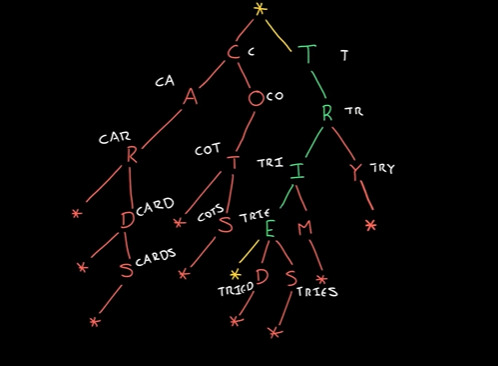 *
C C T T
CA A O CO R TR
CAR R COT T TRI I Y TRY
* D CARD * S COTS TRIE E M *
* S CARDS * * TRIED D S TRIES *
* * *